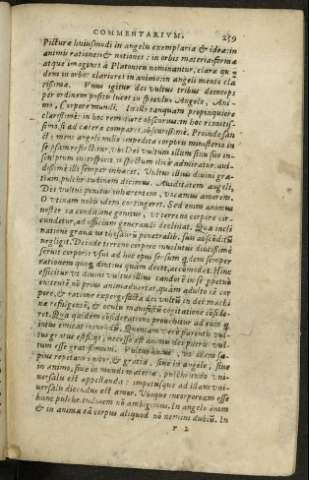 COMMENTARIVM. 259
Picturæ huiusmodi in angelis exemplaria & ideæ: in
animis rationes & notiones: in orbis materia formæ
atque imagines à Platonicis nominantur, claræ qui
dem in orbe: clariores in animo: in angeli mente cla
rissimæ. Vnus igitur dei vultus tribus deinceps
per ordinem positis lucet in speculis Angelo, Ani
mo, Corpore mundi. In illo tanquam propinquiore
clarissime: in hoc remotiore obscurius: in hoc remotis-
simo, si ad cætera compares, obscurissime. Proinde san
cta mens angeli nullo impedita corporis ministerio in
se ipsam reflectitur, vbi Dei vultum illum suo sinu in-
sculptum
dissime illi semper inhæret. Vultus illius diuini gra-
tiam, pulchritudinem dicimus. Auiditatem angeli,
Dei vultui penitus inhærentem, vocamus amorem.
O vtinam nobis idem contingeret. Sed enim animus
noster ea conditione genitus, vt terreno corpore cir-
cundetur, ad officium generandi declinat. Qua incli
natione grauatus thesaurum penetralibus suis absconditum
negligit. Deinde terreno corpore inuolutus diutissime
seruit corporis vsui ad hoc opus
rationem quoque
officitur vt diuini vultus illius candorem in se perpetuo
non prius animaduertat, quàm adulto iam cor
pore, & ratione expergefacta dei vultum in dei machi
na refulgentem, & oculis manifestum cogitatione conside-
ret. Qua quidem consideratione prouehitur ad eum qui
intus emicat intuendum. Quoniam verò parentis vul-
tus gratus est filijs, necesse est animis dei patris vul-
tum esse gratissimum. Vultus huius, vt idem sæ-
pius repetam, nitor, & gratia, siue in angelo, siue
in animo, siue in mundi materia, pulchritudo vni-
uersalis est appellanda: impetusque ad illam vni-
uersalis dicendus est amor. Vtique incorpoream esse
hanc pulchritudinem non ambigimus. In angelo enim
& in animo eam corpus aliquod non esse nemini dubium. In
r 2